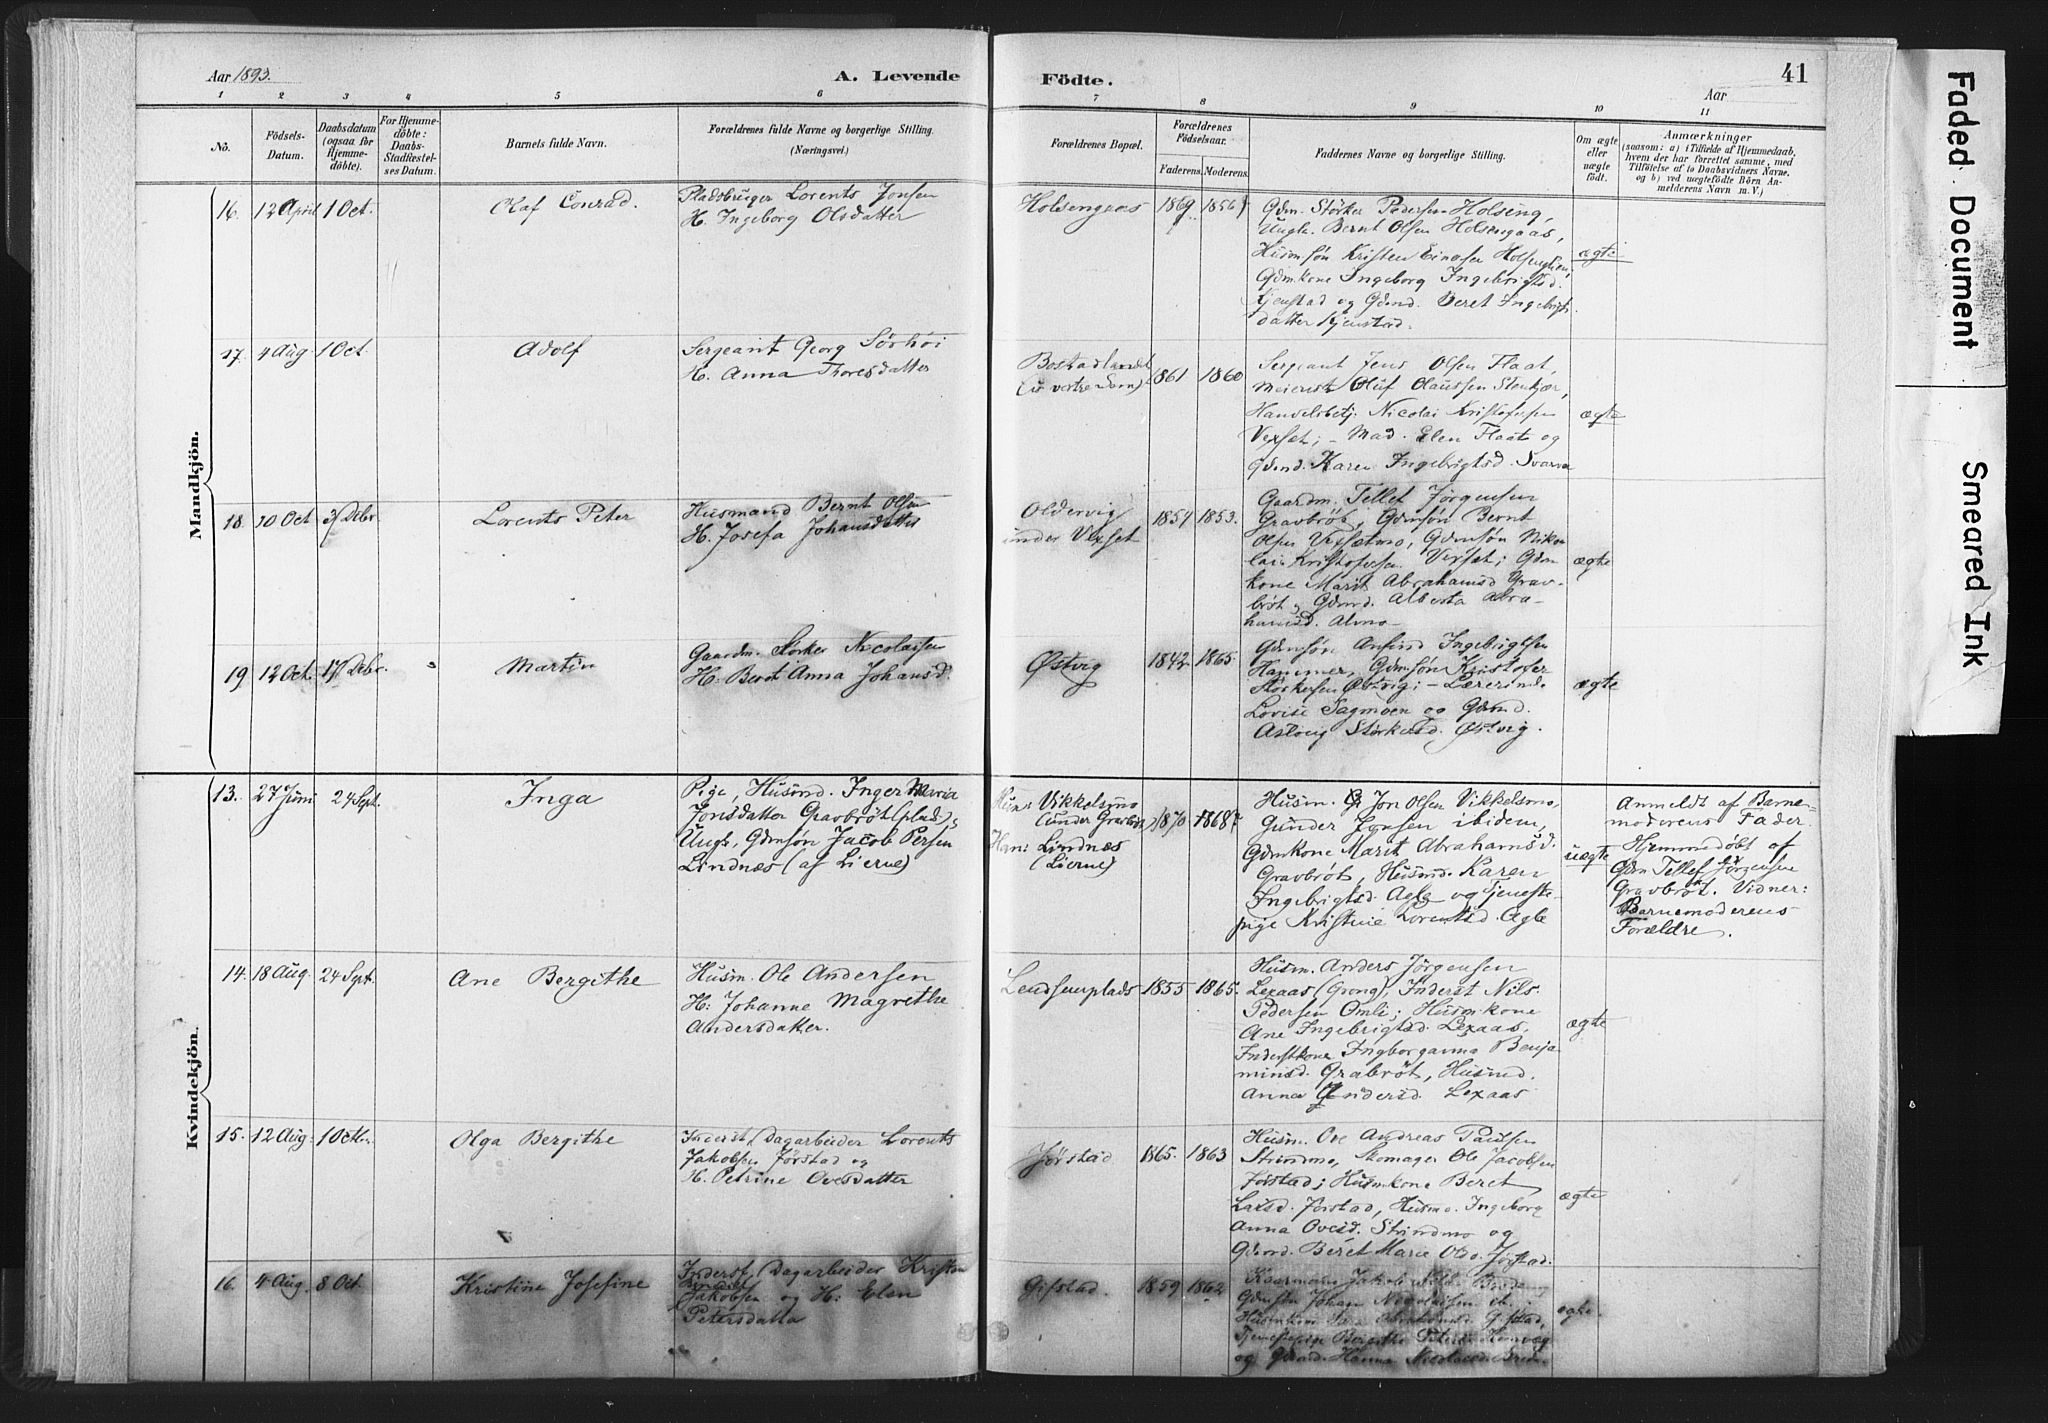 Aar 1893.
A. Levende
Födte.
41
Aar
1 2 3 4 5 6 7 8 9 10 11
No.
Födsels-
Datum.
Daabsdatum
(ogsaa for
Hjemme-
döbte).
For Hjemme-
döbte:
Daabs-
Stadfæstel-
ses Datum.
Barnets fulde Navn.
Forældrenes fulde Navne og borgerlige Stilling.
(Næringsvei.)
Forældrenes Bopæl.
Forældrenes
Födselsaar.
Faderens. Moderens.
Faddernes Navne og borgerlige Stilling.
Om ægte
eller
uægte
födt.
Anmærkninger
(saasom: a) i Tilfælde af Hjemmedaab,
hvem der har forrettet samme, med
Tilföielse af to Daabsvidners Navne,
og b) ved uægtefödte Börn An-
melderens Navn m. V.)
Mandkjön.
16. 12 April 1 Oct.
Olaf Conrad.
Pladsbruger Lorents Jonsen
H. Ingeborg Olsdatter
Holsengaas 1869
Gdm. Störker Pedersen Holseng,
Ungk. Bernt Olsen Holsengaas,
Husmsøn Kristen
Gdmkone Ingeborg Ingebrigtsd.
Kjenstad og Gdmd. Beret Ingebrigts
datter Kjenstad.
ægte
17. 4 Aug 1 Oct.
Adolf
Sergeant Georg Sörhöi
H. Anna Thoresdatter
1861 1860
Sergeant Jens Olsen Flaat,
Meierist Oluf Olaussen Stenkjær,
Handelsbetj. Nicolai Kristofersen
Vexset; – Mad. Elen Flaat og
Gdmd. Karen Ingebrigtsd. Svarva
ægte
18. 10 Oct 3/ Debr
Lorents Peter
Husmand Bernt Olsen
H. Josefa Johansdatter
Oldervig
under Vexset
1851 1853.
Gaardm. Tellef Jörgensen
Gravbröt, Gdmsøn Bernt
Olsen Vexsetmo, Gdmsøn Niko
lai Kristofersen Vexset; Gdm
kone Marit Abrahamsd Grav-
bröt, Gdmd. Alberta Abra-
hamsd. Almo
ægte
19 12 Oct. 17 Debr.
Martin
Gaardm. Störker Nicolaisen
H: Berit Anna Johansd.
Østvig
1842 1865.
Gdmsøn Anfind Ingebrigtsen
Hammer, Gdmsøn Kristofer
Störkersen Østvig; – Lærerinde
Lovise Sagmoen og Gdmd.
Aslaug Störkersd. Østvig.
ægte
Kvindekjön.
13. 27 Juni 24 Sept.
Inga
Pige, Husmd. Inger Maria
Jonsdatter Gravbröt (plads),
Ungk, Gdmsøn Jacob Persen
Lindnæs (af Lierne)
Hun: Vikkelsmo
(under Gravbröt)
Han: Lindnæs
(Lierne)
1870 1868
Husm. Jon Olsen Vikkelsmo,
Gunder Jonsen ibidem,
Gdmkone Marit Abrahamsd.
Gravbröt, Husmd. Karen
Ingebrigtsd. Agle og Tjeneste-
pige Kristine Lorentsd. Agle
uægte
Anmeldt af Barne-
moderens Fader.
Hjemmedøbt af
Gdm Tellef Jörgensen
Gravbröt. Vidner:
Barnemoderens
Forældre.
14. 18 Aug. 24 Sept.
Ane Bergithe
Husm. Ole Andersen
H: Johanne Magrethe
Andersdatter.
Lendsemplads 1855 1865.
Husm. Anders Jörgensen
Lexaas (Grong), Inderst Nils
Pedersen Omli; Husmkone
Ane Ingebrigtsd. Lexaas,
Inderstkone Ingborganna Benja
minsd. Grabröt, Husmd.
Anna Andersd. Lexaas
ægte
15. 12 Aug. 1 Octbr.
Olga Bergithe
Inderst, Dagarbeider Lorents
Jakobsen Jörstad og
H. Petrine Ovesdatter
Jörstad 1865. 1863
Husm. Ove Andreas Paulsen
Strindmo, Skomager Ole Jacobsen
Jörstad; Husmkone Beret
Larsd. Jörstad, Husmd. Ingeborg
Anna Ovesd. Strindmo og
Gdmd. Beret Marie Olsd. Jörstad.
ægte
16. 4 Aug. 8 Oct.
Kristine Josefine
Inderst, Dagarbeider Kristen
Jakobsen og H: Elen
Petersdatter
Gifstad. 1859 1862
Gdmsøn Johan Nicolaisen
Tjenestepige Bergithe
og Gdmd. Hanna
ægte.
Faded Document
Smeared Ink